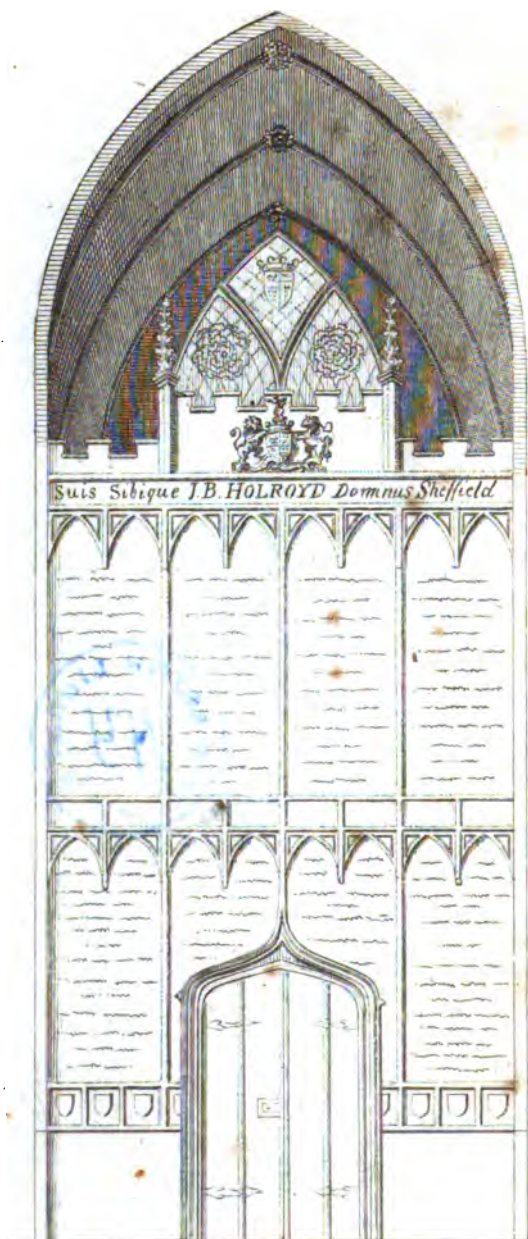 Suis Sibique I.B. HOLROYD Dominus Sheffield